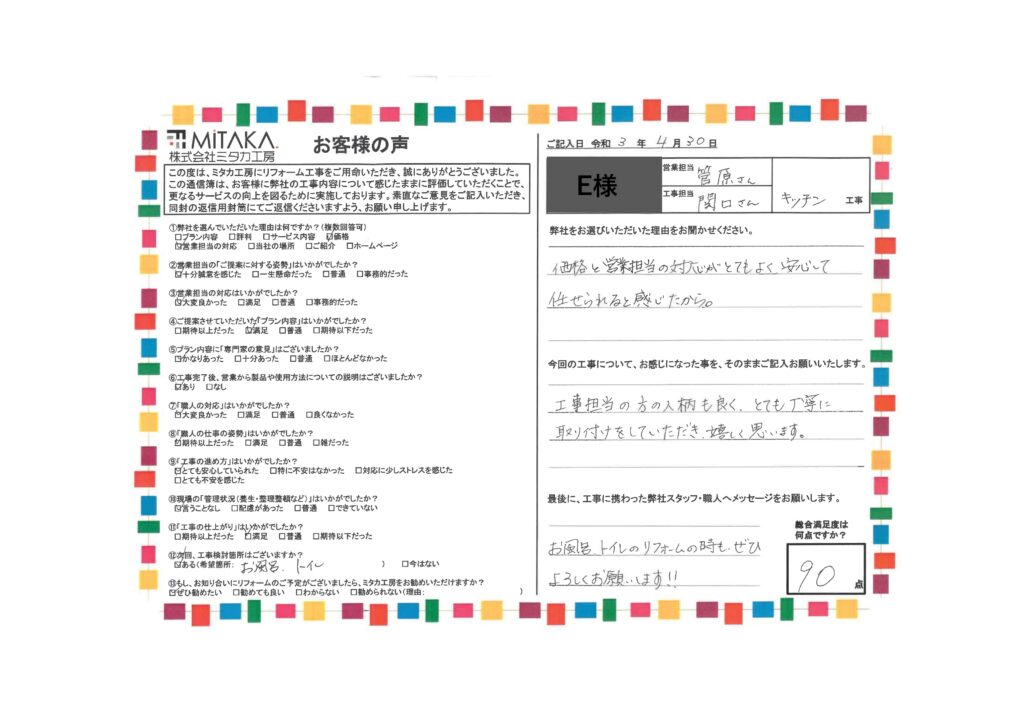 MiTAKA.
株式会社ミタカ工房
お客様の声
この度は、ミタカ工房にリフォーム工事をご用命いただき、誠にありがとうございました。
この通信簿は、お客様に弊社の工事内容について感じたままに評価していただくことで、
更なるサービスの向上を図るために実施しております。素直なご意見をご記入いただき、
同封の返信用封筒にてご返信くださいますよう、お願い申し上げます。
①弊社を選んでいただいた理由は何ですか?(複数回答可)
□プラン内容 □評判 □サービス内容 ☑価格
☑営業担当の対応 □当社の場所 □ご紹介 □ホームページ
②営業担当の「ご提案に対する姿勢」はいかがでしたか?
☑十分誠意を感じた □一生懸命だった □普通 □事務的だった
③営業担当の対応はいかがでしたか?
☑大変良かった □満足 □普通 □事務的だった
④ご提案させていただいた「プラン内容」はいかがでしたか?
□期待以上だった ☑満足 □普通 □期待以下だった
⑤プラン内容に「専門家の意見」はございましたか?
☑かなりあった □十分あった □普通 □ほとんどなかった
⑥工事完了後、営業から製品や使用方法についての説明はございましたか?
☑あり □なし
⑦「職人の対応」はいかがでしたか?
☑大変良かった □満足 □普通 □良くなかった
⑧「職人の仕事の姿勢」はいかがでしたか?
☑期待以上だった □満足 □普通 □雑だった
⑨「工事の進め方」はいかがでしたか?
☑とても安心していられた □特に不安はなかった □対応に少しストレスを感じた
□とても不安を感じた
⑩現場の「管理状況(養生・整理整頓など)」はいかがでしたか?
☑言うことなし □配慮があった □普通 □できていない
⑪「工事の仕上がり」はいかがでしたか?
□期待以上だった ☑満足 □普通 □期待以下だった
⑫次回、工事検討箇所はございますか?
☑ある(希望箇所: お風呂、トイレ ) □今はない
⑬もし、お知り合いにリフォームのご予定がございましたら、ミタカ工房をお勧めいただけますか?
☑ぜひ勧めたい □勧めても良い □わからない □勧められない(理由: )
ご記入日 令和 3 年 4 月 30 日
E様
営業担当 菅原さん
工事担当 関口さん
キッチン 工事
弊社をお選びいただいた理由をお聞かせください。
価格と営業担当の対応がとてもよく安心して
任せられると感じたから。
今回の工事について、お感じになった事を、そのままご記入お願いいたします。
工事担当の方の人柄も良く、とても丁寧に
取り付けをしていただき、嬉しく思います。
最後に、工事に携わった弊社スタッフ・職人へメッセージをお願いします。
お風呂、トイレのリフォームの時も、ぜひ
よろしくお願いします!!
総合満足度は
何点ですか?
90 点